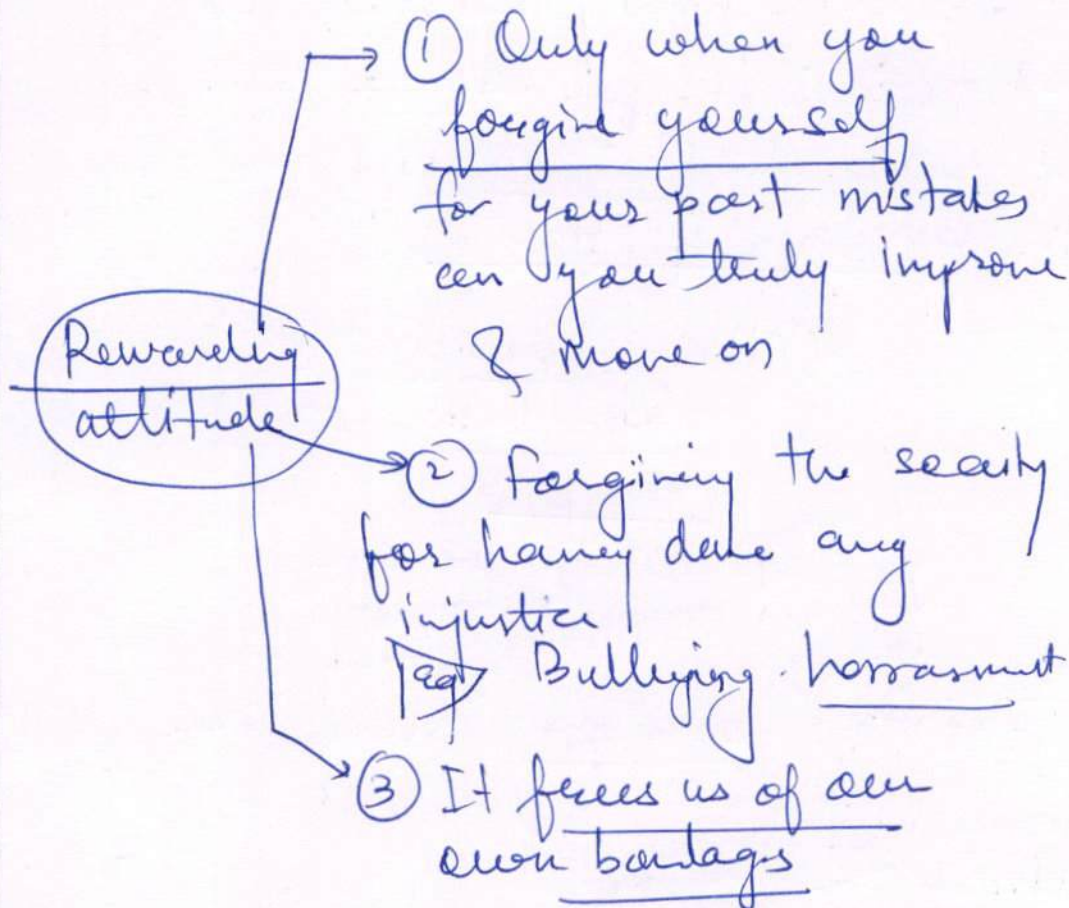 ① Only when you
forgive yourself
for your past mistakes
can you truly improve
& move on
Rewarding
attitude
② Forgiving the society
for having done any
injustice
eg Bullying. harrasmnt
③ It frees us of our
own bondages